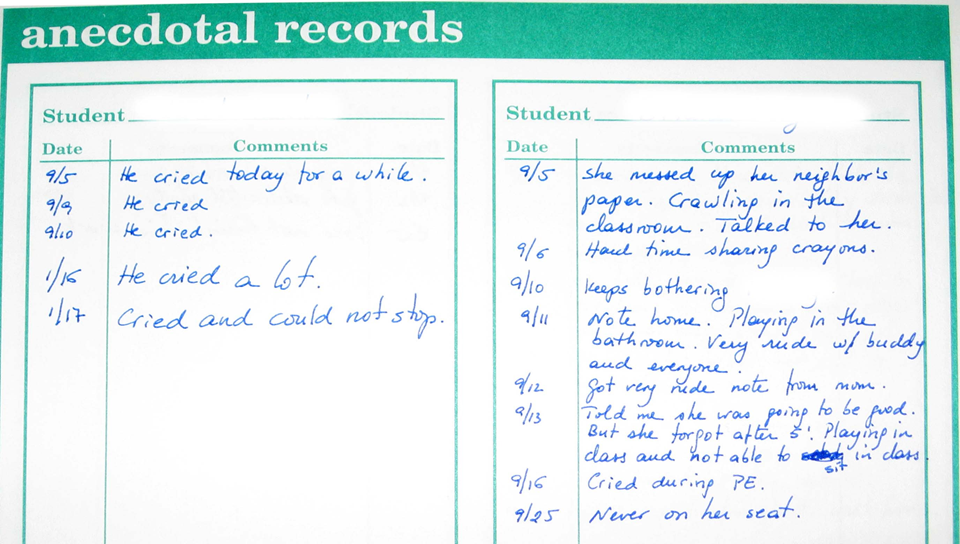 anecdotal records
Student
Date Comments
9/5 He cried today for a while.
9/9 He cried
9/10 He cried.
1/16 He cried a lot.
1/17 Cried and could not stop.
Student
Date Comments
9/5 She messed up her neighbor's
paper. Crawling in the
classroom. Talked to her.
9/6 Hard time sharing crayons.
9/10 Keeps bothering
9/11 Note home. Playing in the
bathroom. Very rude w/ buddy
and everyone.
9/12 Got very rude note from mom.
9/13 Told me she was going to be good.
But she forgot after 5'. Playing in
class and not able to sit in class.
9/16 Cried during PE.
9/25 Never on her seat.